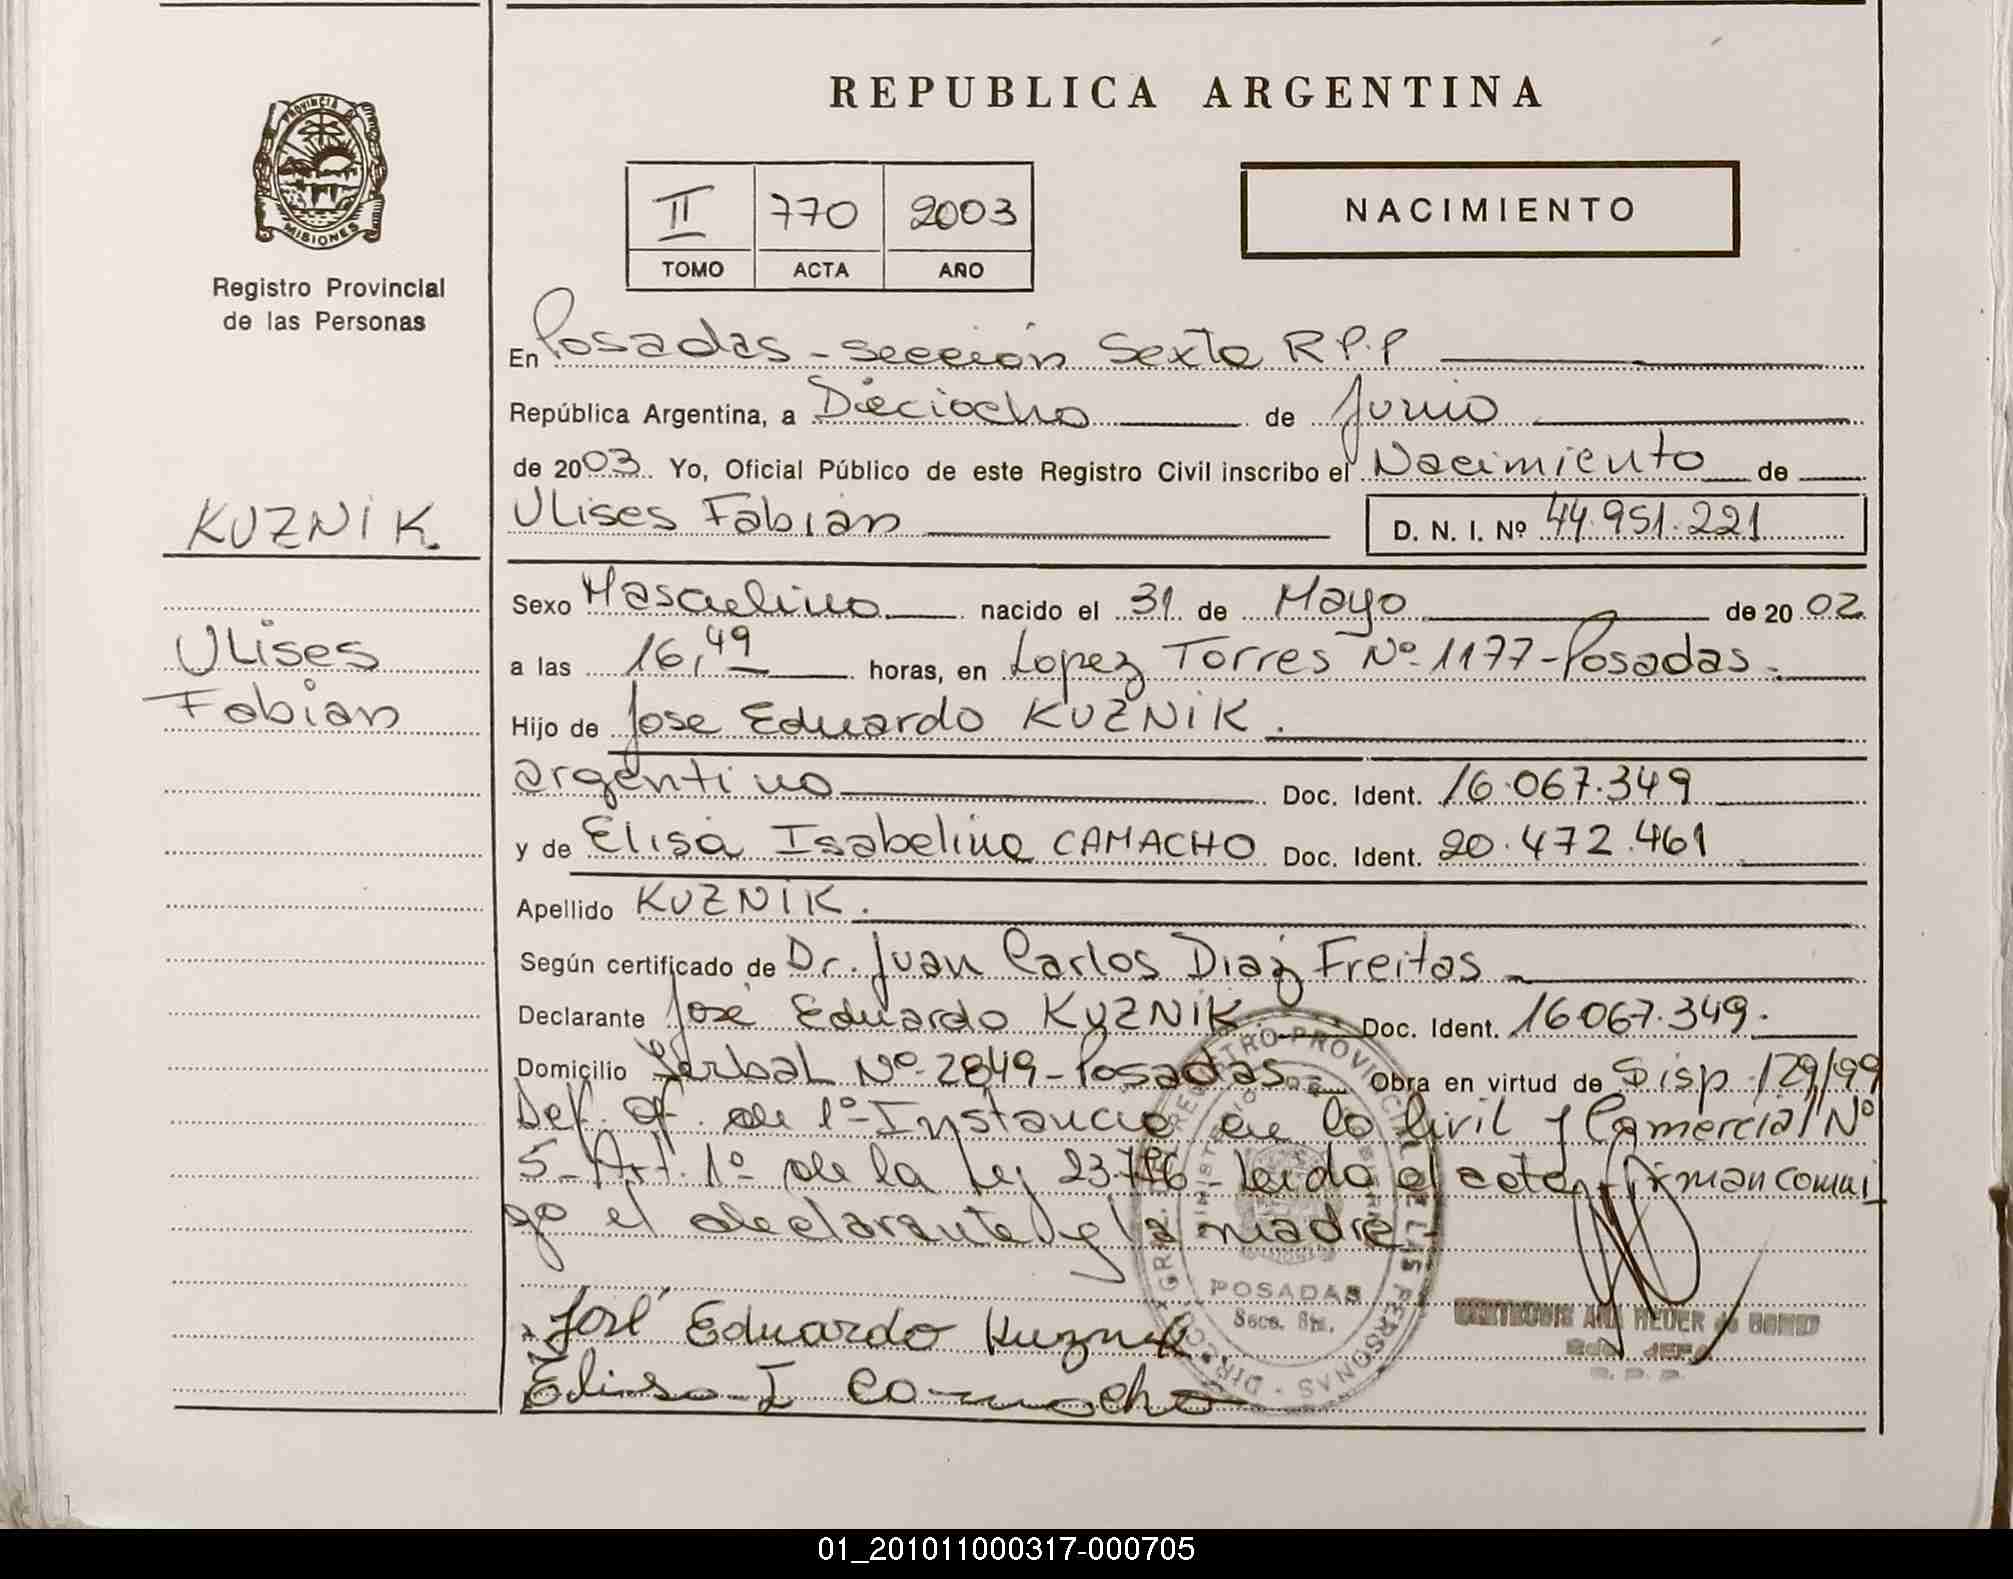 REPUBLICA ARGENTINA
PROVINCIA DE
MISIONES
Registro Provincial
de las Personas
II 770 2003
TOMO ACTA AÑO
NACIMIENTO
En Posadas - sección Sexta R.P.P
República Argentina, a Dieciocho de Junio
de 2003. Yo, Oficial Público de este Registro Civil inscribo el Nacimiento de
KUZNIK.
Ulises Fabián
D. N. I. Nº 44.951.221
Sexo Masculino nacido el 31 de Mayo de 20 02
Ulises
Fabian
a las 16,49 horas, en Lopez Torres Nº 1177 - Posadas.
Hijo de Jose Eduardo KUZNIK.
argentino Doc. Ident. 16.067.349
y de Elisa Isabelina CAMACHO Doc. Ident. 20.472.461
Apellido KUZNIK.
Según certificado de Dr. Juan Carlos Diaz Freitas
Declarante José Eduardo KUZNIK Doc. Ident. 16067.349.
Domicilio Yerbal Nº 2849 - Posadas Obra en virtud de Disp. 129/99
Def. Of. de 1º Instancia en lo Civil y Comercial Nº
5 - Art. 1º de la Ley 23.776 - Leido el acta, firman conmi
go el declarante y la madre -
José Eduardo Kuznik
Elisa I Camacho
POSADAS
Secc. 6ta.
01_201011000317-000705